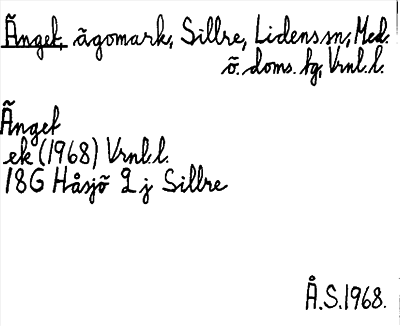 Änget, ägomark, Sillre, Lidens sn, Med.
ö. doms. hg, Vrnl. l.
Änget
ek (1968) Vrnl. l.
18G Håsjö 9 j Sillre
Å.S. 1968.